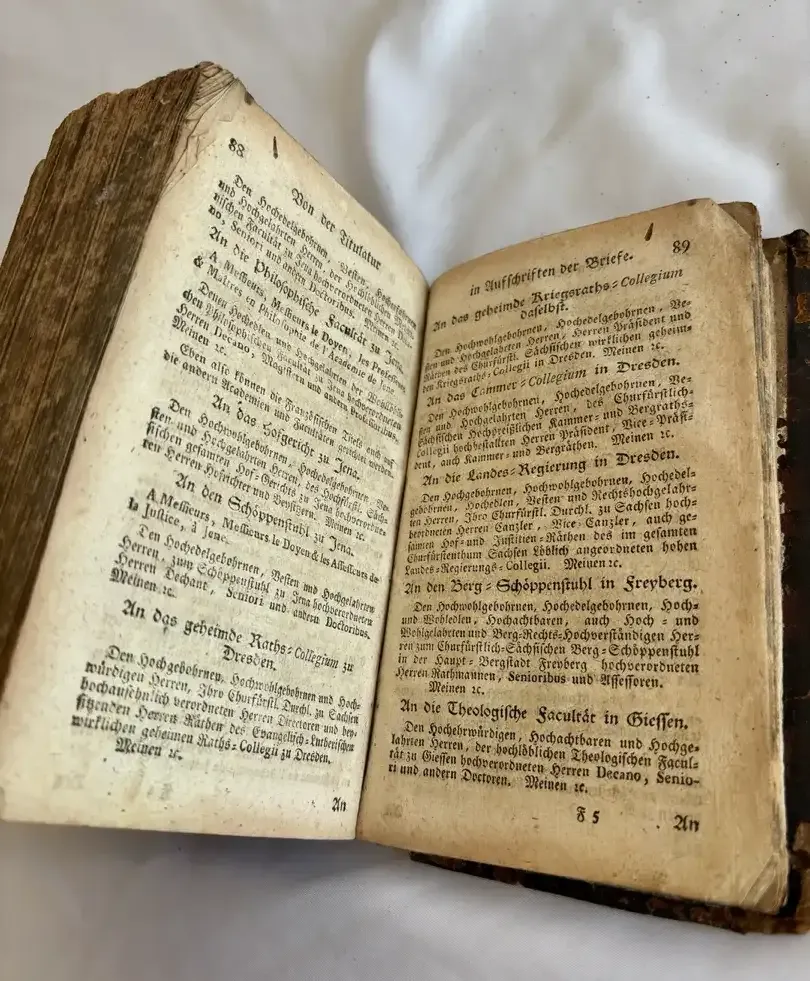 88
Von der Titulatur
Den Hochedelgebohrnen, Vesten, Hocherfahrnen
und Hochgelahrten Herren, der Hochlöblichen Medici-
nischen Facultät zu Jena hochverordneten Herren Deca-
no, Seniori und andern Doctoribus. Meinen ꝛc.
An die Philosophische Facultät zu Jena.
A Messieurs, Messieurs le Doyen, les Professeurs
& Maitres en Philosophie de l'Academie de Jene.
Denen Hochedlen und Hochgelahrten der Wohllöbli-
chen Philosophischen Facultät zu Jena hochverordneten
Herren Decano, Magistris und andern Doctoribus.
Meinen ꝛc.
Eben also können die Französischen Titels auch auf
die andern Academien und Facultäten gerichtet werden.
An das Hofgericht zu Jena.
Den Hochwohlgebohrnen, Hochedelgebohrnen, Ve-
sten und Hochgelahrten Herren, des Hochfürstl. Säch-
sischen gesamten Hof-Gerichts zu Jena hochverordne-
ten Herren Hofrichter und Beysitzern. Meinen ꝛc.
An den Schöppenstuhl zu Jena.
A Messieurs, Messieurs le Doyen & les Assesseurs de
la Justice, à Jene.
Den Hochedelgebohrnen, Vesten und Hochgelahrten
Herren, zum Schöppenstuhl zu Jena hochverordneten
Herren Dechant, Seniori und andern Doctoribus.
Meinen ꝛc.
An das geheimde Raths-Collegium zu
Dresden.
Den Hochgebohrnen, Hochwohlgebohrnen und Hoch-
würdigen Herren, Ihro Churfürstl. Durchl. zu Sachsen
hochansehnlich verordneten Herren Directoren und bey-
sitzenden Herren Räthen des Evangelisch-Lutherischen
wirklichen geheimen Raths-Collegii zu Dresden.
Meinen ꝛc.
An
89
in Aufschriften der Briefe.
An das geheimde Kriegsraths-Collegium
daselbst.
Den Hochwohlgebohrnen, Hochedelgebohrnen, Ve-
sten und Hochgelahrten Herren, Herren Präsident und
Räthen des Churfürstl. Sächsischen wirklichen geheim-
den Kriegsraths-Collegii in Dresden. Meinen ꝛc.
An das Cammer-Collegium in Dresden.
Den Hochwohlgebohrnen, Hochedelgebohrnen, Ve-
sten und Hochgelahrten Herren, des Churfürstlich-
Sächsischen Hochpreißlichen Kammer- und Bergraths-
Collegii hochbestallten Herren Präsident, Vice-Präsi-
dent, auch Kammer- und Bergräthen. Meinen ꝛc.
An die Landes-Regierung in Dresden.
Den Hochgebohrnen, Hochwohlgebohrnen, Hochedel-
gebohrnen, Hochedlen, Vesten und Rechtshochgelahr-
ten Herren, Ihro Churfürstl. Durchl. zu Sachsen hoch-
beordneten Herren Canzler, Vice-Canzler, auch ge-
samten Hof- und Justitien-Räthen des im gesamten
Churfürstenthum Sachsen Löblich angeordneten hohen
Landes-Regierungs-Collegii. Meinen ꝛc.
An den Berg-Schöppenstuhl in Freyberg.
Den Hochwohlgebohrnen, Hochedelgebohrnen, Hoch-
und Wohledlen, Hochachtbaren, auch Hoch- und
Wohlgelahrten und Berg-Rechts-Hochverständigen Her-
ren zum Churfürstlich-Sächsischen Berg-Schöppenstuhl
in der Haupt-Bergstadt Freyberg hochverordneten
Herren Rathmannen, Senioribus und Assessoren.
Meinen ꝛc.
An die Theologische Facultät in Giessen.
Den Hochehrwürdigen, Hochachtbaren und Hochge-
lahrten Herren, der hochlöblichen Theologischen Facul-
tät zu Giessen hochverordneten Herren Decano, Senio-
ri und andern Doctoren. Meinen ꝛc.
F 5
An